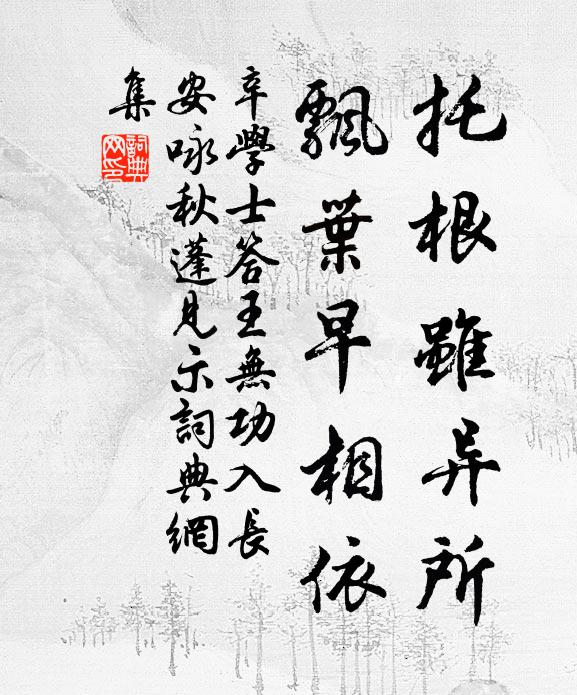 托根雖异所
飄葉早相依
辛學士答王無功入長
安咏秋蓬見示詞典網
集
詞典
网印